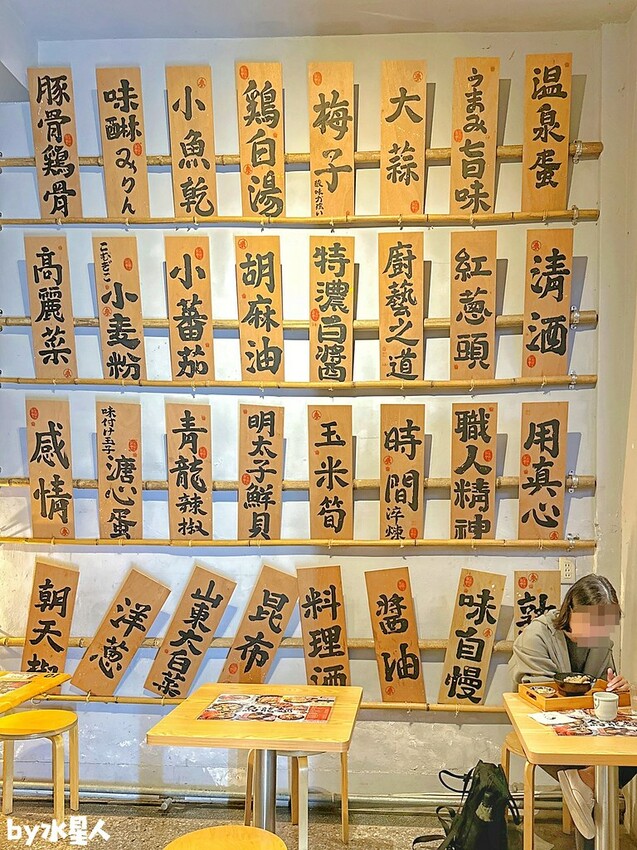 豚骨鶏骨
味醂みりん
小魚乾
鶏白湯
梅子
酸味が强い
大蒜
うまみ旨味
温泉蛋
高麗菜
こむぎこ
小麥粉
小蕃茄
胡麻油
特濃白醬
廚藝之道
紅蔥頭
清酒
感情
味付け玉子
溏心蛋
青龍辣椒
明太子鮮貝
玉米筍
時間淬煉
職人精神
用真心
朝天椒
洋蔥
山東大白菜
昆布
料理酒
醬油
味自慢
by水星人